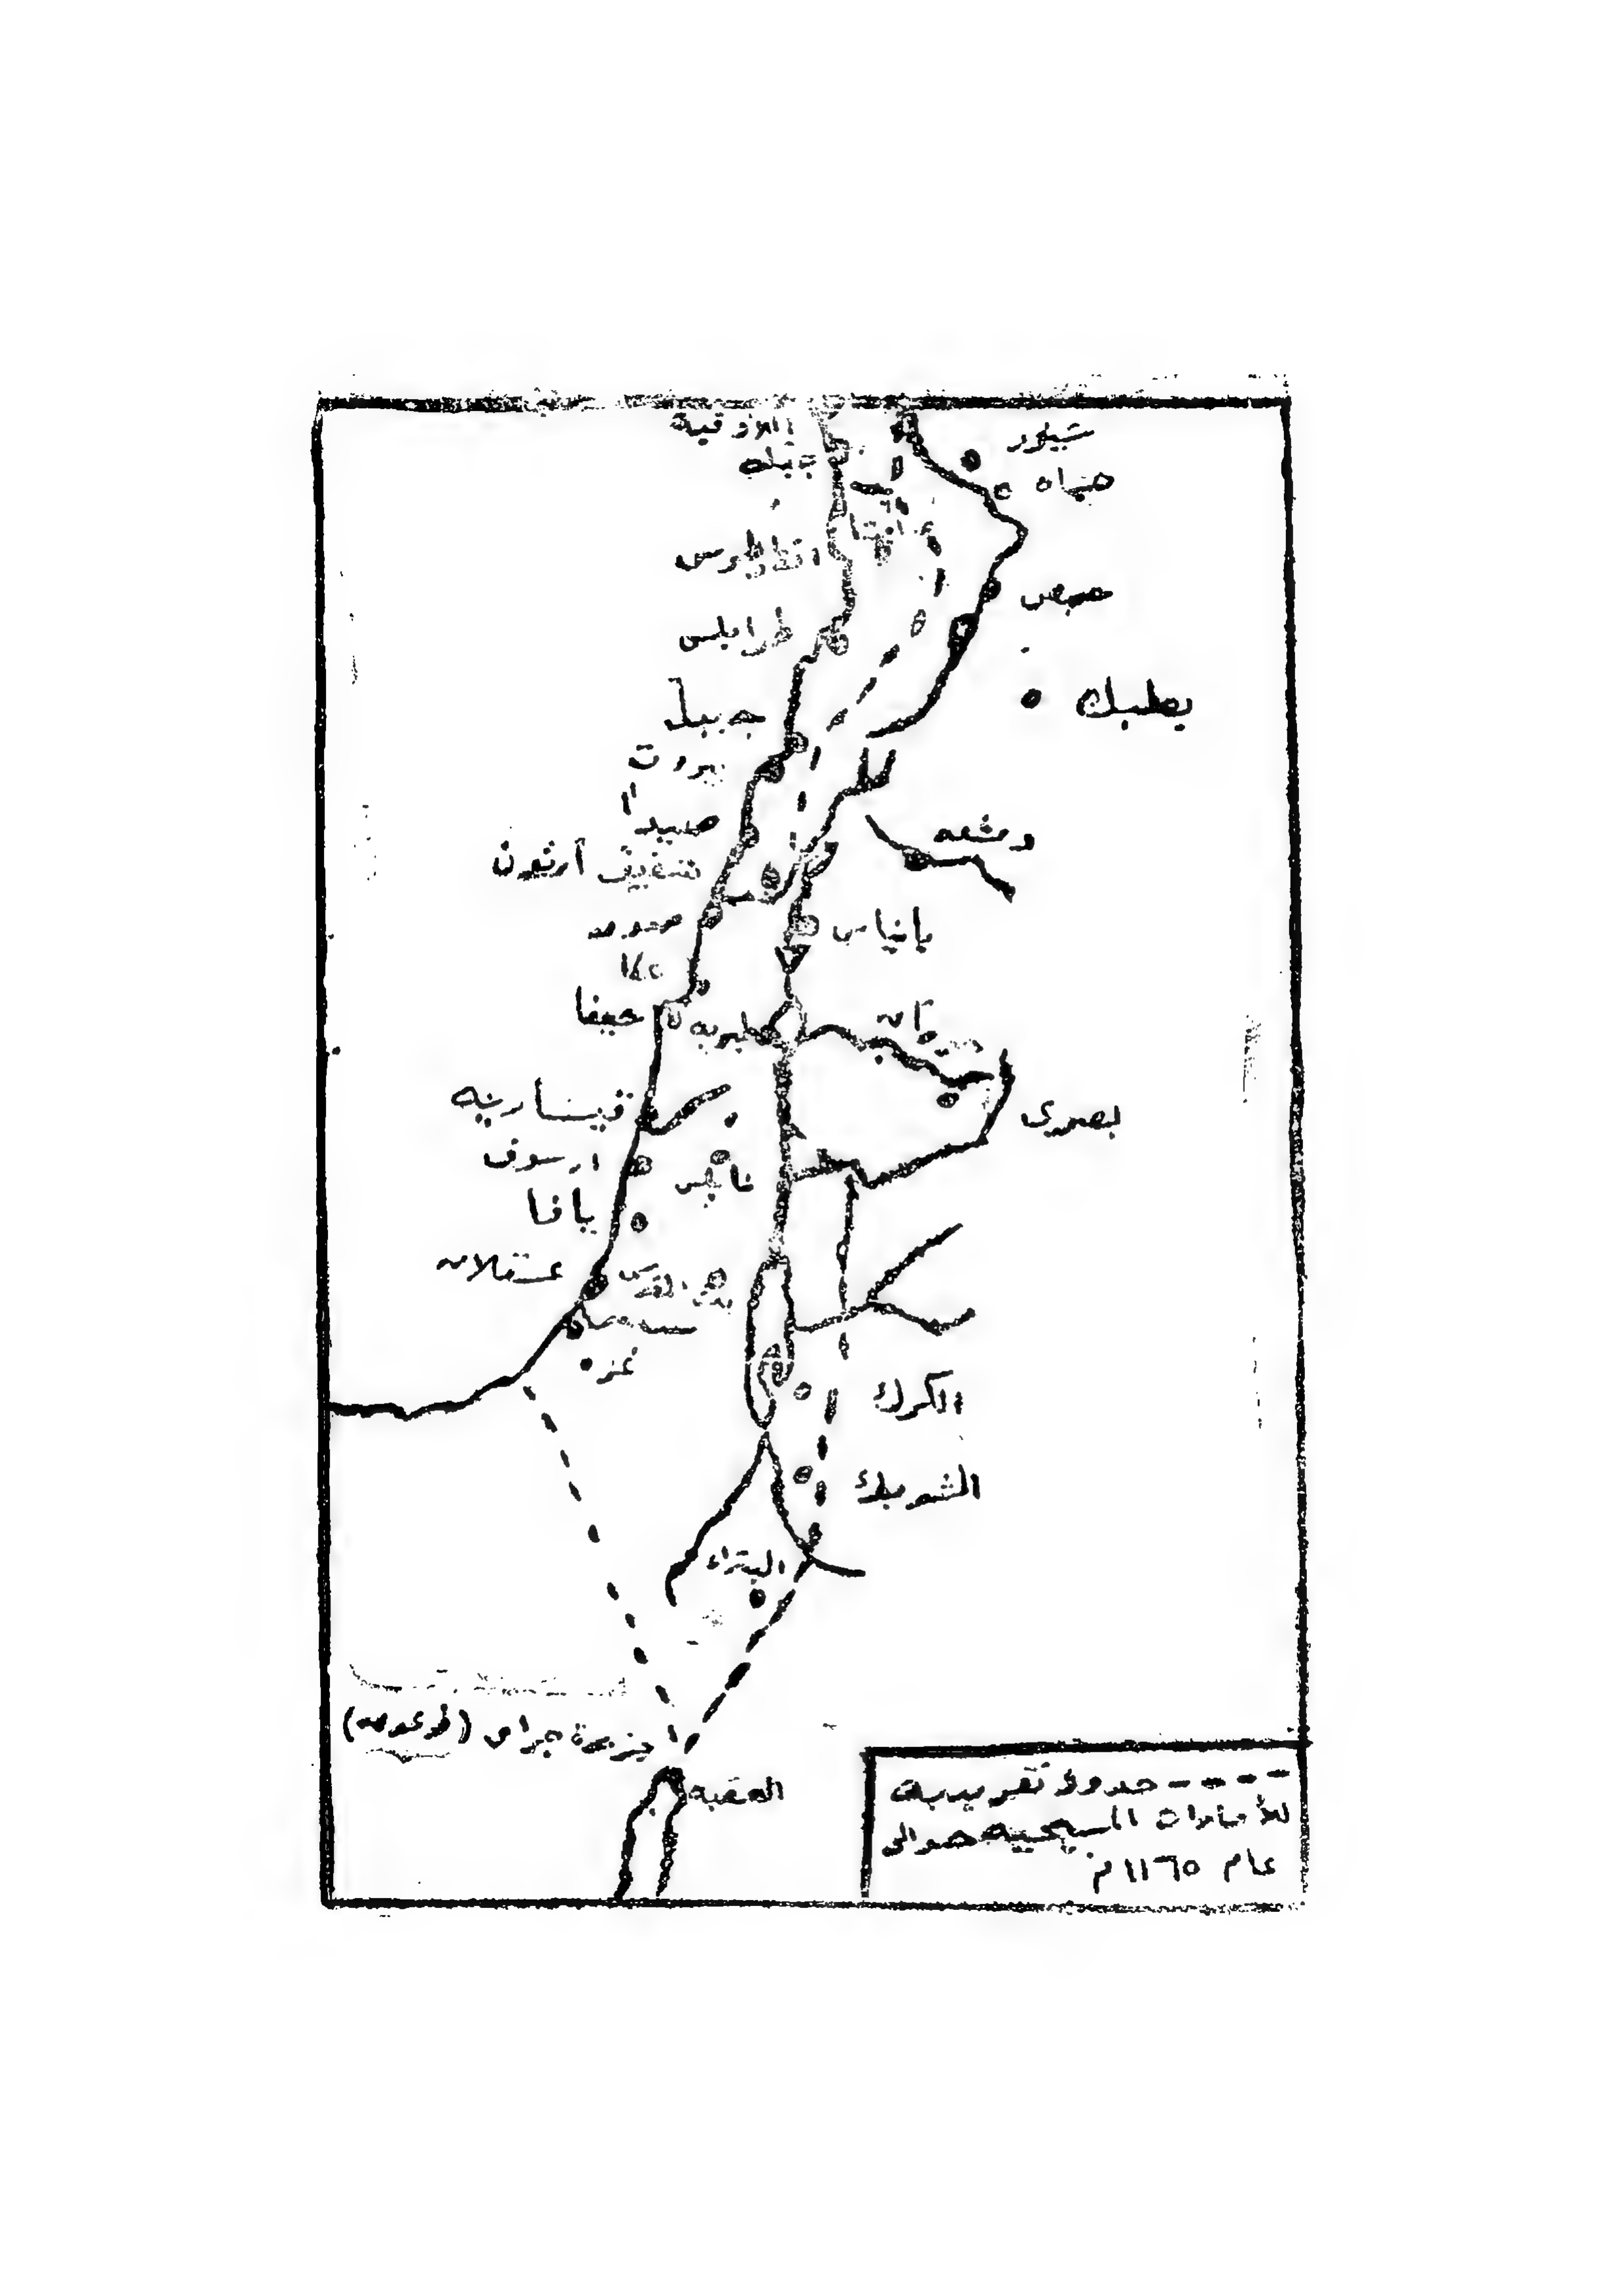 اللاذقية
شيزر
جبلة
حماه
انطرطوس
حمص
طرابلس
بعلبك
جبيل
بيروت
صيدا
دمشق
شقيف أرنون
صور
بانياس
عكا
حيفا
طبرية
قيسارية
بصرى
ارسوف
نابلس
يافا
عسقلان
القدس
غزه
الكرك
الشوبك
البتراء
جزيرة جراى (فرعون)
العقبه
---- حدود تقريبية
للأمارات المسيحيه حوالى
عام ١١٦٥م